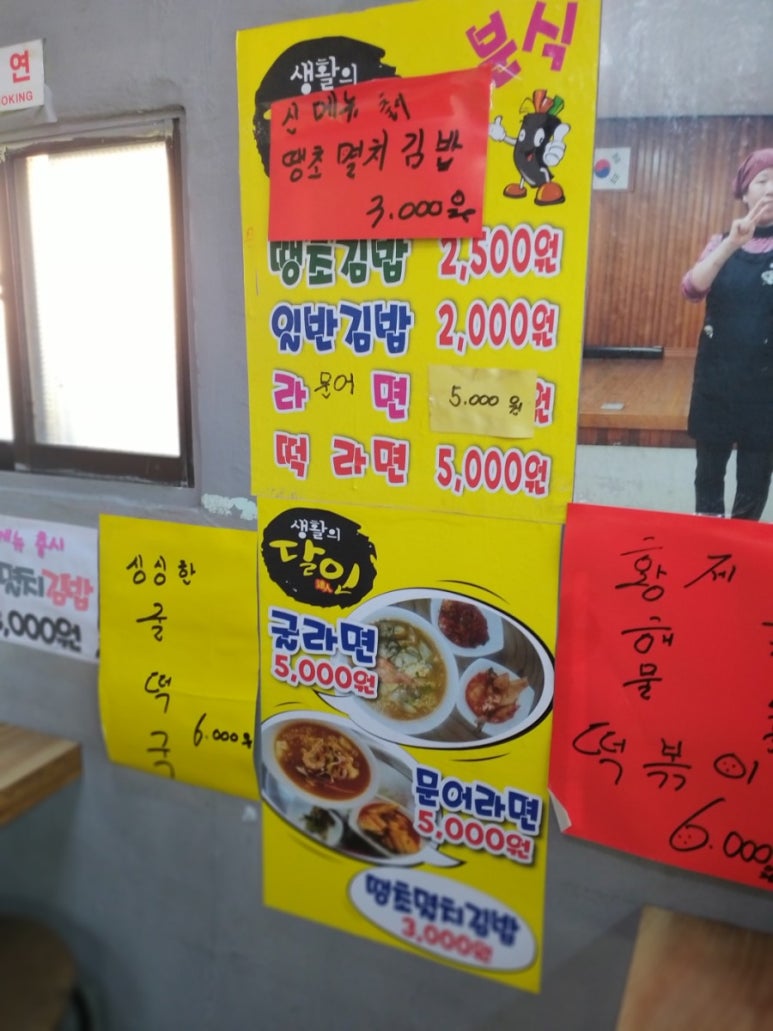 연
OKING
분식
생활의
신 메뉴 출시
땡초 멸치 김밥
3.000원
땡초김밥 2,500원
일반김밥 2,000원
라 문어 면 5.000원 원
떡 라면 5,000원
메뉴 출시
멸치김밥
3,000원
싱싱한
굴
떡
국
6.000원
생활의
달인
굴라면
5,000원
문어라면
5,000원
땡초멸치김밥
3,000원
황제
해
물
떡볶이
6.000원